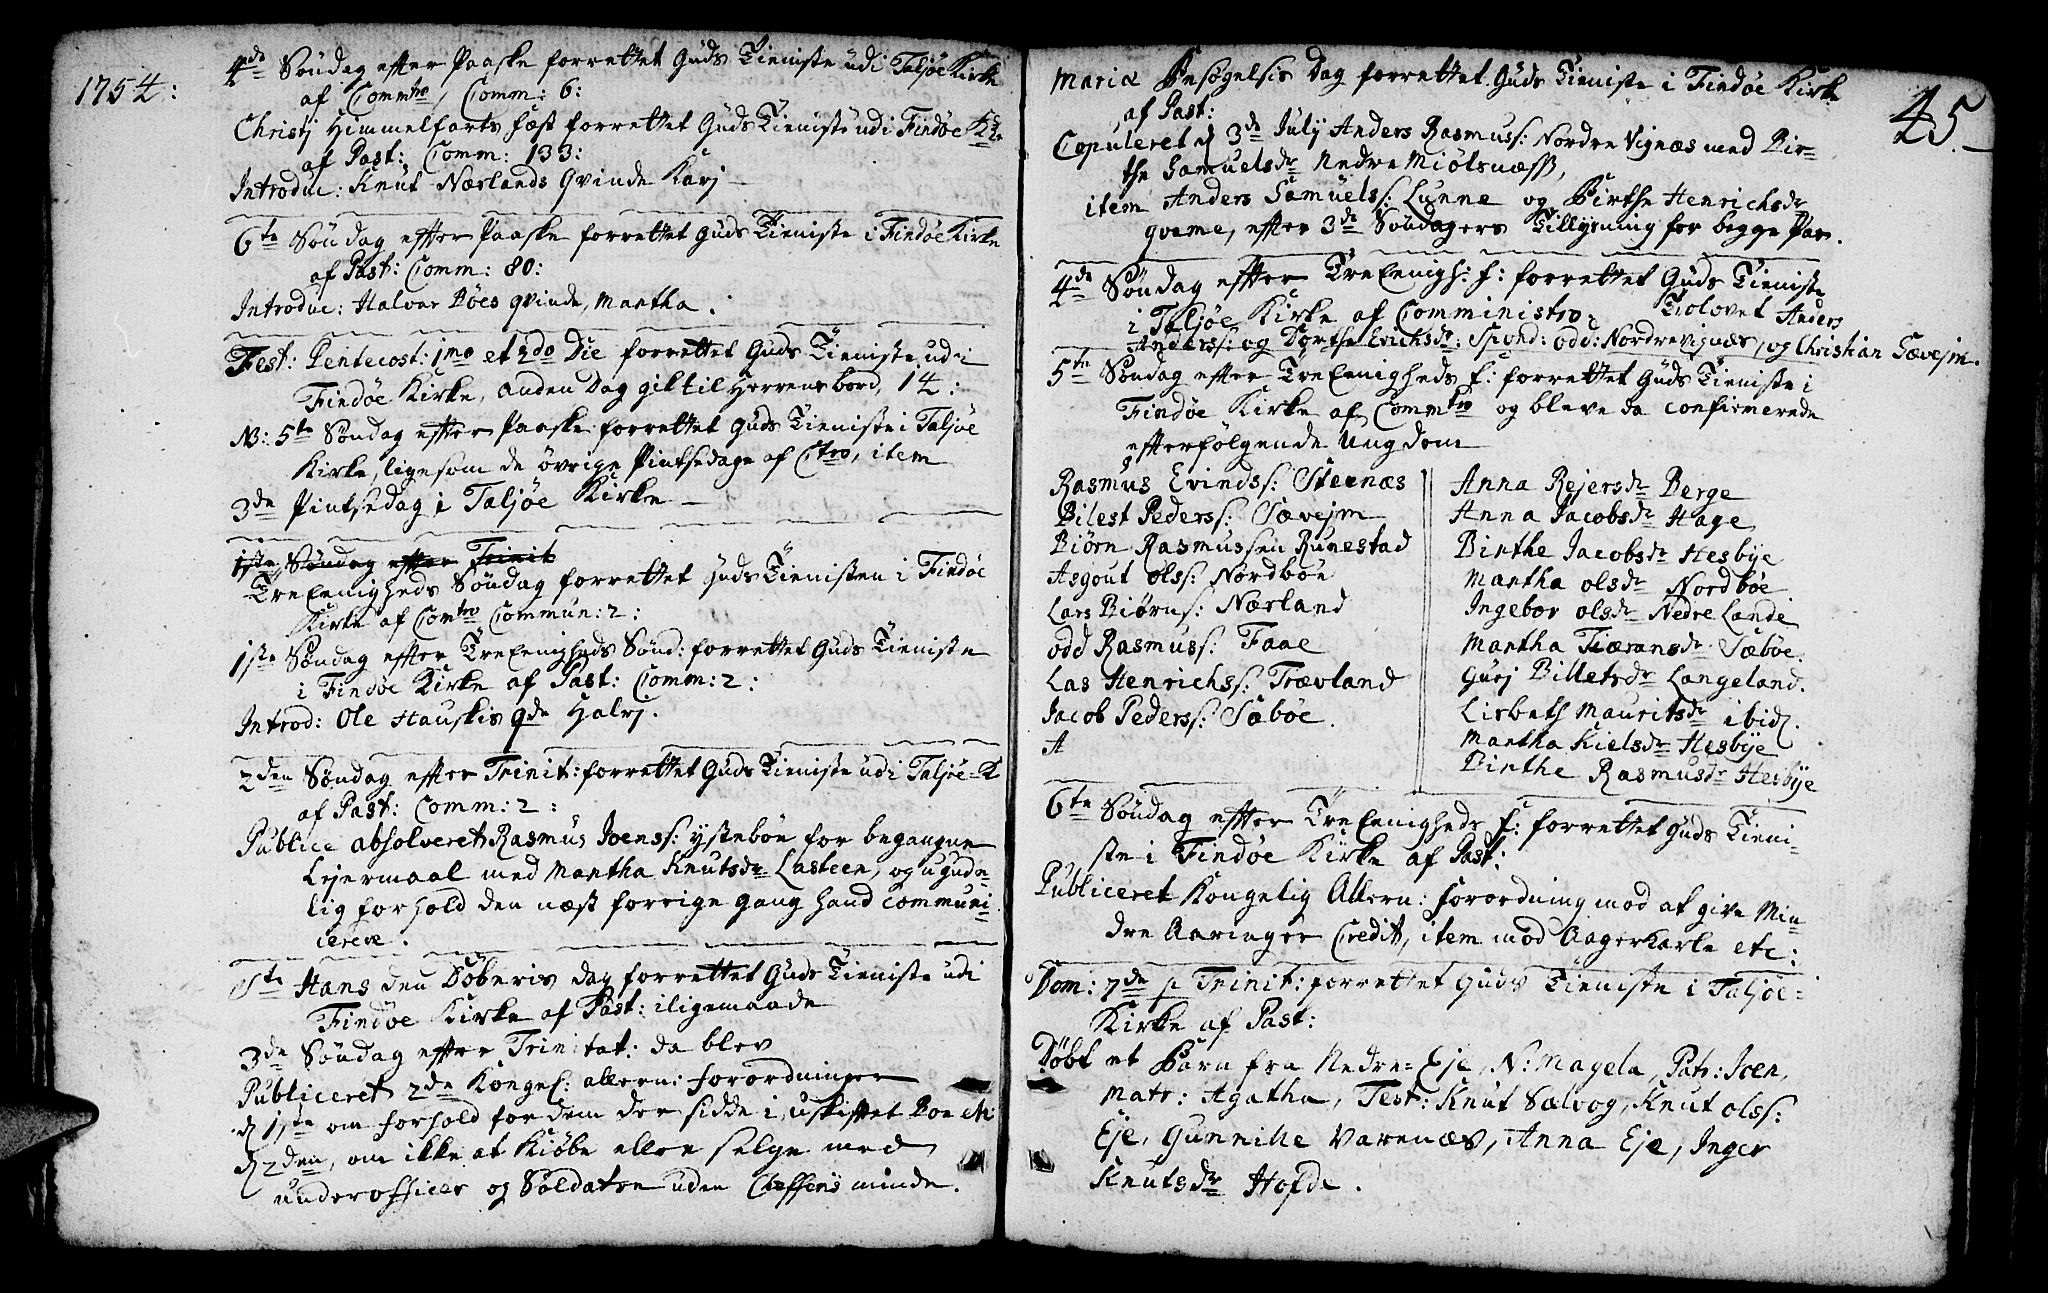 1754:
4de Søndag efter Paaske forrettet Guds Tieniste udi Taljøe Kirke
af Commtro, Comm: 6:
Christj Himmelfarts fæst forrettet Guds Tieniste udi Findøe
af Past: Comm: 133:
Introduc: Knut Nærlands Qvinde Karj
6te Søndag efter Paaske forrettet Guds Tieniste i Findøe Kirke
af Past: Comm: 80:
Introduc: Halvar Bøes qvinde, Martha.
Fest: Pentecost: 1mo et 2do Die forrettet Guds Tieniste udi
Findøe Kirke, anden Dag gik til Herrens bord, 14:
NB: 5te Søndag efter Paaske forrettet Guds Tieniste i Taljøe
Kirke, ligesom de øvrige Pintsedage af Ctro, item
3de Pintsedag i Taljøe Kirke
1ste Søndag efter Trinit
Treeenigheds Søndag forrettet Guds Tienisten i Findøe
Kirke af Comtro Commun: 2:
1ste Søndag efter Treeenigheds Sønd: forrettet Guds Tieniste
i Findøe Kirke af Past: Comm: 2:
Introd: Ole Hauskis qde Halvj.
2den Søndag efter Trinit: forrettet Guds Tieniste udi Taljøe-K
af Past: Comm: 2:
Publice absolveret Rasmus Joenss: ystebøe for begangne
Lejermaal med Martha Knutsdr Lasteen, og ugude-
lig forhold den næst forrige gang hand communi-
cerede.
Ste Hans den Døberis dag forrettet Guds Tieniste udi
Findøe Kirke af Past: iligemaade
3de Søndag efter Trinitat: da blev
Publiceret 2de Kongel: allern: forordninger
d 1ste om forhold for dem der sidde i uskiftet Boe et
d 2den, om ikke at Kiøbe eller selge med
underofficer og Soldater uden Cheffens minde.
45.
Mariæ Besøgelsis Dag forrettet Guds Tieniste i Findøe Kirke
af Past:
Copuleret d 3de July Anders Rasmuss: Nordre Vignæs med Bir-
the Samuelsdr Nedre Miølsnæss,
item Anders Samuelss: Lunne og Birthe Henrichsdr
qvame, efter 3de Søndagers Tillysning for begge Par.
4de Søndag efter Treeenigh: f: forrettet Guds Tieniste
i Taljøe Kirke af Comministro. Trolovet Anders
Anderss: og Dorthe Erichsdr: Spond: odd: Nordrevignæs, og Christian Sævejm.
5te Søndag efter Treeenigheds f: forrettet Guds Tieniste i
Findøe Kirke af Commtro og bleve da confirmerede
efterfølgende Ungdom
Rasmus Evindss: Steenæs
Bilest Pederss: Sævejm
Biørn Rasmussen Runestad
Asgout olss: Nordbøe
Lars Biørns: Nærland
odd Rasmuss: Faae
Las Henrichss: Trævland
Jacob Pederss: Sæbøe.
A
Anna Rejersdr Berge
Anna Jacobsdr Hage
Birthe Jacobsdr Hesbye
Martha olsdr Nordbøe
Ingebor olsdr Nedre Lande
Martha Tiæransdr Sæbøe.
Gurj Billetsdr Langeland.
Lisbeth Mauritsdr ibid.
Martha Kielsdr Hesbye
Birthe Rasmusdr Hesbye
6te Søndag efter Treeenigheds f: forrettet Guds Tieni-
ste i Findøe Kirke af Past:
Publiceret Kongelig Allern: forordning mod at give Min
dre Aaringer Credit, item mod Aagerkarle etc:
Dom: 7de p Trinit: forrettet Guds Tieniste i Taljøe-
Kirke af Past:
Døbt et Barn fra Nedre-Eje, N: Magela, Patr: Joen,
Matr: Agatha, Test: Knut Sælvog, Knut olss:
Eje, Gunnille Varenæs, Anna Eje, Inger
Knutsdr Hofde.